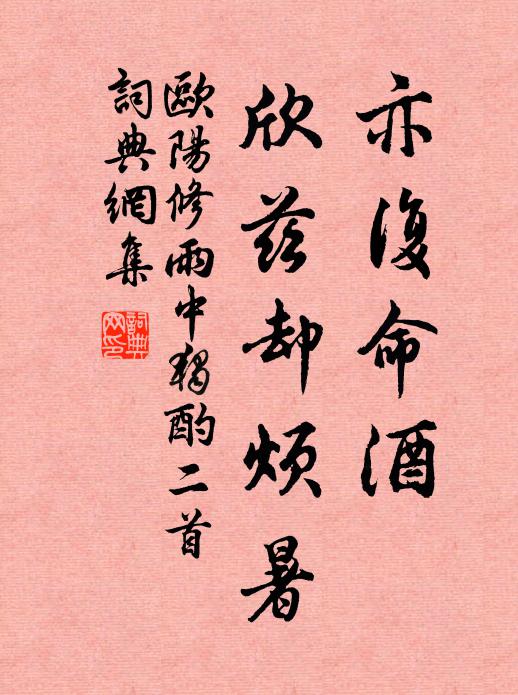 亦復命酒
欣茲却煩暑
歐陽修雨中獨酌二首
詞典網集
詞典網印